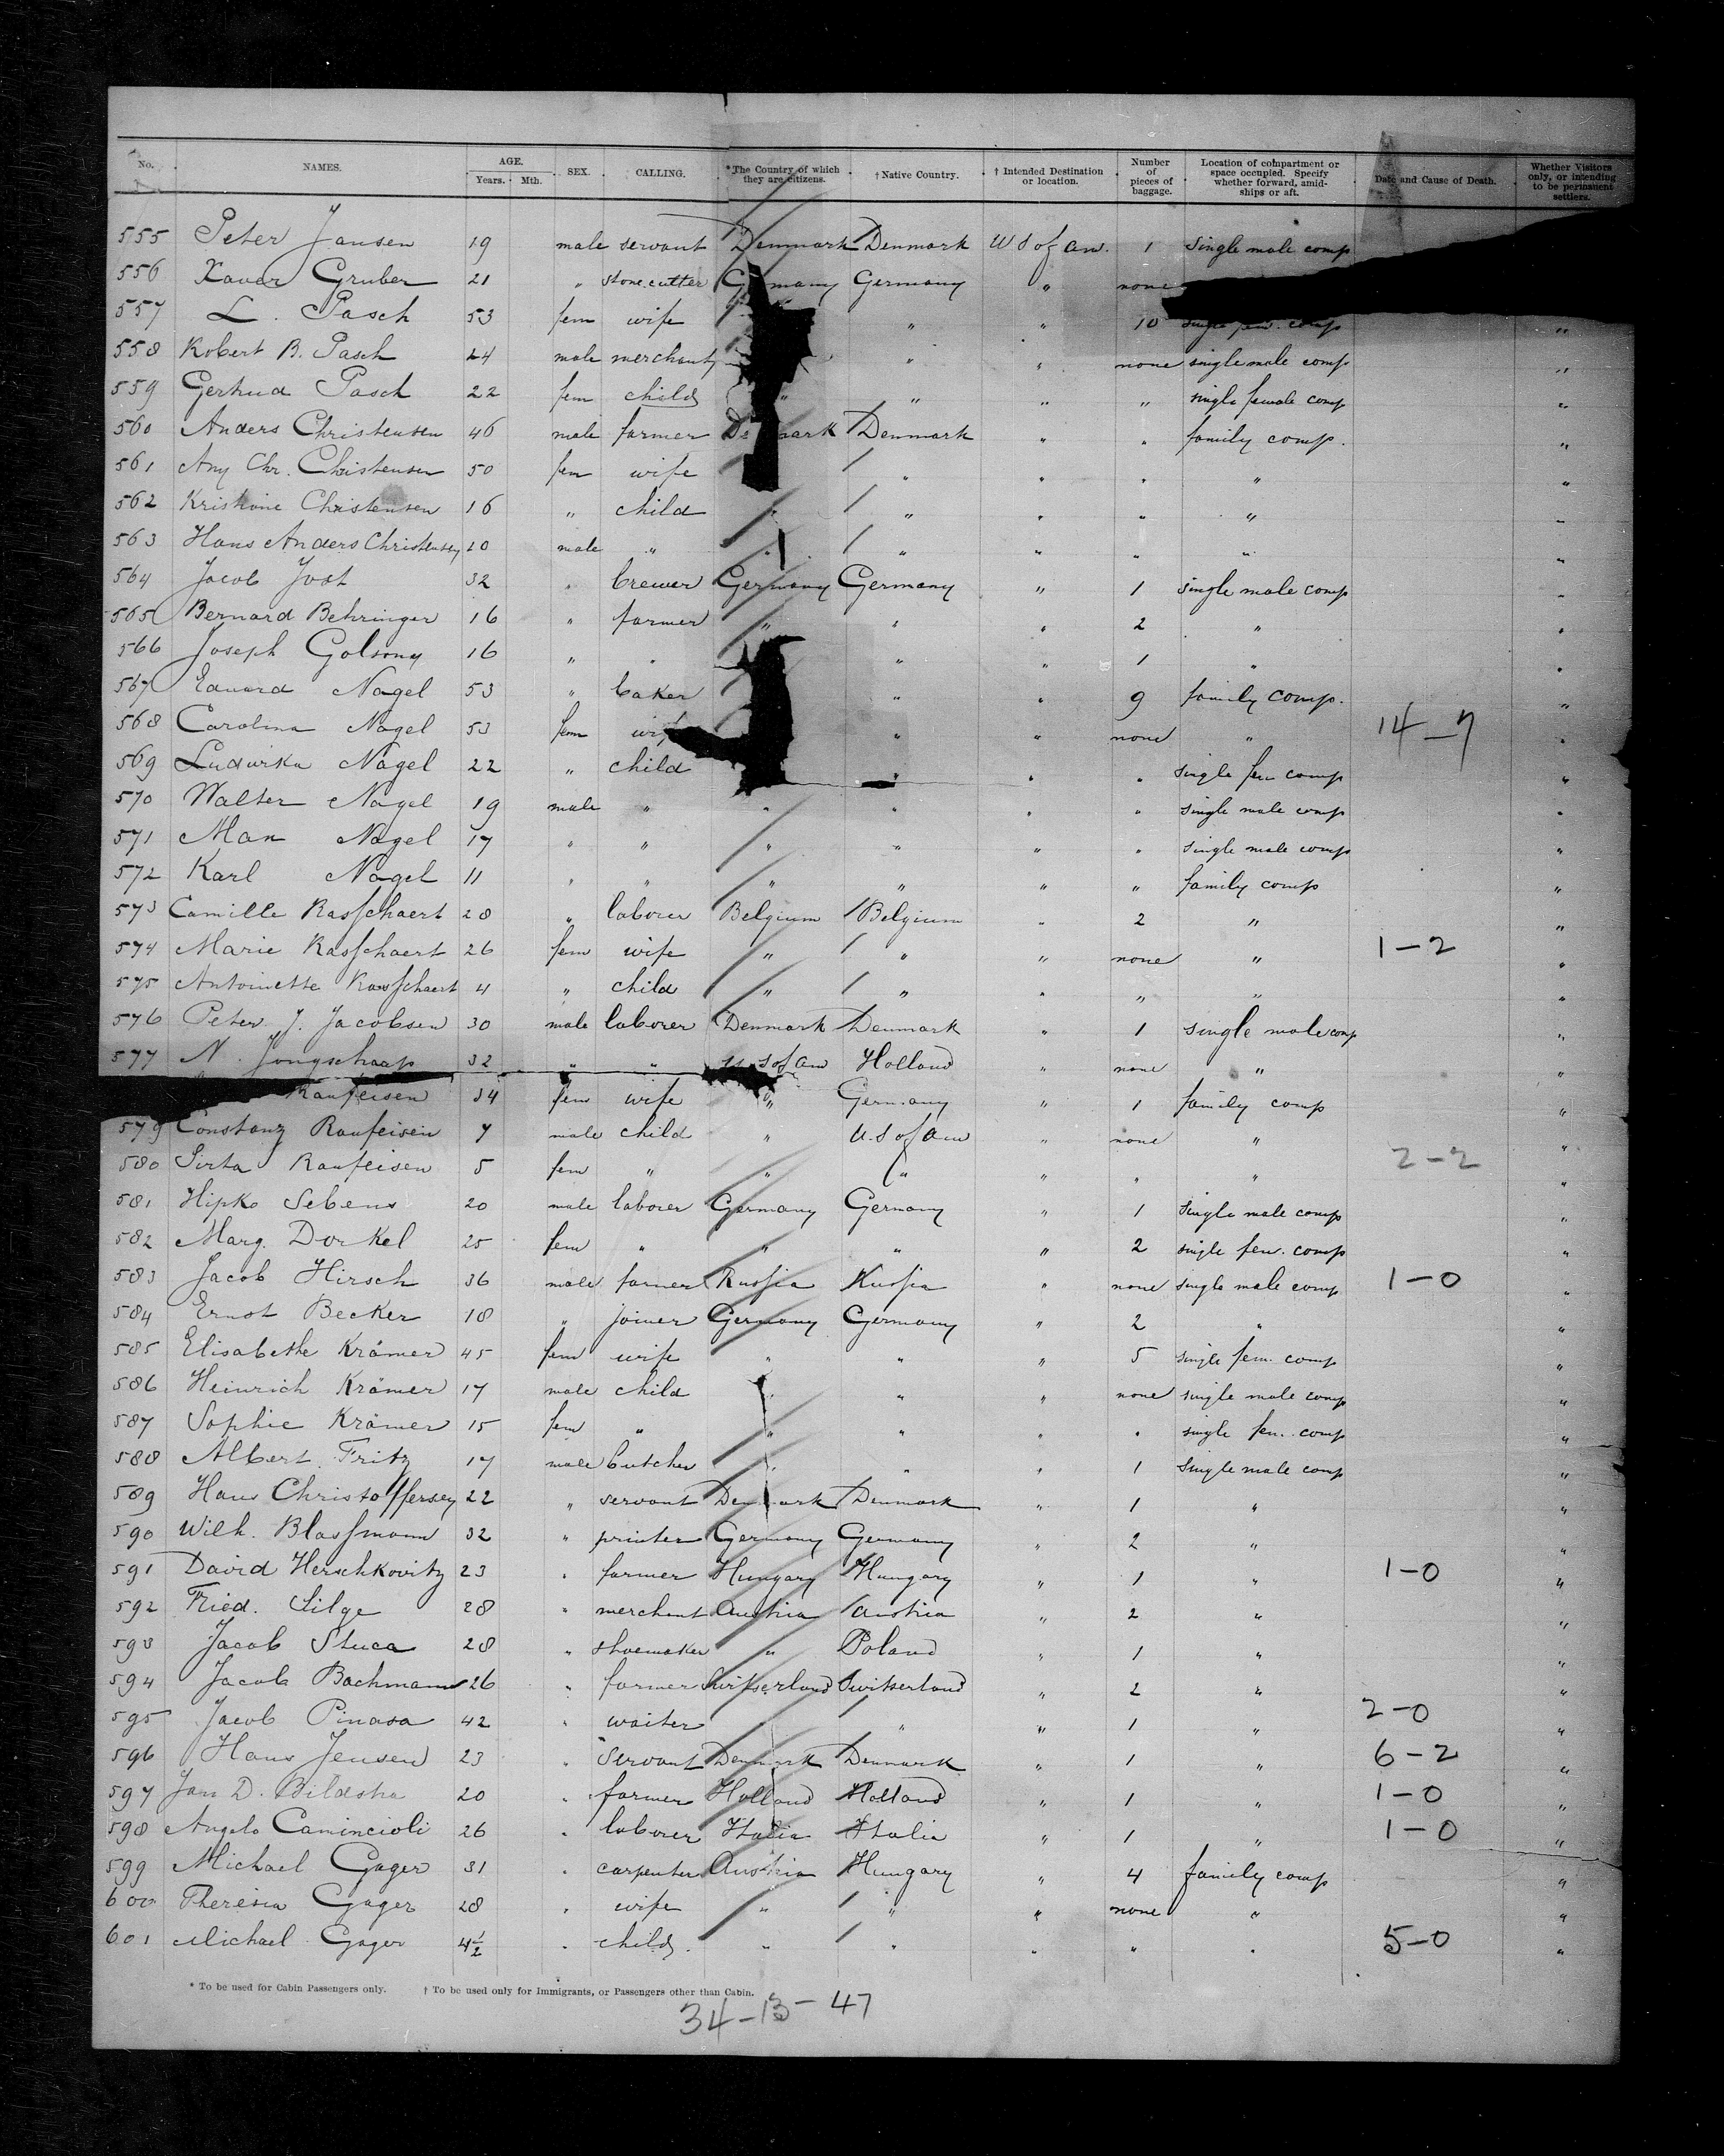 No. NAMES. AGE. Years. Mth. SEX. CALLING. *The Country of which they are citizens. †Native Country. † Intended Destination or location. Number of pieces of baggage. Location of compartment or space occupied. Specify whether forward, amidships or aft. Date and Cause of Death. Whether Visitors only, or intending to be permanent settlers.
555 Peter Jansen 19 male servant Denmark Denmark U S of Am. 1 single male comp
556 Xaver Gruber 21 " stone cutter Germany Germany " none
557 L. Pasch 53 fem wife " " 10 single fem. comp "
558 Robert B. Pasch 24 male merchant " " none single male comp "
559 Gertrud Pasch 22 fem child " " " " single female comp "
560 Anders Christensen 46 male farmer Denmark Denmark " " family comp. "
561 Any Chr. Christensen 50 fem wife " " " " "
562 Kristine Christensen 16 " child " " " " " "
563 Hans Anders Christensen 20 male " " " " " " "
564 Jacob Jost 32 " brewer Germany Germany " 1 single male comp "
565 Bernard Behringer 16 " farmer " " " 2 " "
566 Joseph Golsony 16 " " " " 1 " "
567 Eduard Nagel 53 " baker " " 9 family comp. "
568 Carolina Nagel 53 fem wife " " none " 14-7 "
569 Ludwika Nagel 22 " child " " " single fem comp "
570 Walter Nagel 19 male " " " " " single male comp "
571 Max Nagel 17 " " " " " " single male comp "
572 Karl Nagel 11 " " " " " " family comp "
573 Camille Rasschaert 28 " laborer Belgium Belgium " 2 " "
574 Marie Rasschaert 26 fem wife " " " none " 1-2 "
575 Antoinette Rasschaert 4 " child " " " " " "
576 Peter J. Jacobsen 30 male laborer Denmark Denmark " 1 single male comp "
577 N. Jongschaap 32 " " U S of Am Holland " none " "
Raufeisen 34 fem wife " Germany " 1 family comp "
579 Constanz Raufeisen 7 male child " U. S of Am " none " "
580 Sirta Raufeisen 5 fem " " " " " " 2-2 "
581 Hipko Sebens 20 male laborer Germany Germany " 1 single male comp "
582 Marg. Dorkel 25 fem " " " " 2 single fem. comp "
583 Jacob Hirsch 36 male farmer Russia Russia " none single male comp 1-0 "
584 Ernst Becker 18 " joiner Germany Germany " 2 " "
585 Elisabethe Krämer 45 fem wife " " " 5 single fem. comp "
586 Heinrich Krämer 17 male child " " " none single male comp "
587 Sophie Krämer 15 fem " " " " " single fem. comp "
588 Albert Fritz 17 male butcher " " " 1 single male comp "
589 Hans Christoffersen 22 " servant Denmark Denmark " 1 " "
590 Wilh. Blassmann 32 " printer Germany Germany " 2 " "
591 David Herschkovitz 23 " farmer Hungary Hungary " 1 " 1-0 "
592 Fried. Silge 28 " merchant Austria Austria " 2 " "
593 Jacob Stuca 28 " shoemaker " Poland " 1 " "
594 Jacob Bachmann 26 " farmer Switserland Switserland " 2 " "
595 Jacob Pinasa 42 " waiter " " " 1 " 2-0 "
596 Hans Jensen 23 " servant Denmark Denmark " 1 " 6-2 "
597 Jan D. Bildstra 20 " farmer Holland Holland " 1 " 1-0 "
598 Angelo Camincioli 26 " laborer Italia Italia " 1 " 1-0 "
599 Michael Gager 31 " carpenter Austria Hungary " 4 family comp "
600 Theresia Gager 28 " wife " " " none " "
601 Michael Gager 4½ " child. " " " " " 5-0 "
* To be used for Cabin Passengers only. † To be used only for Immigrants, or Passengers other than Cabin.
34-13-47